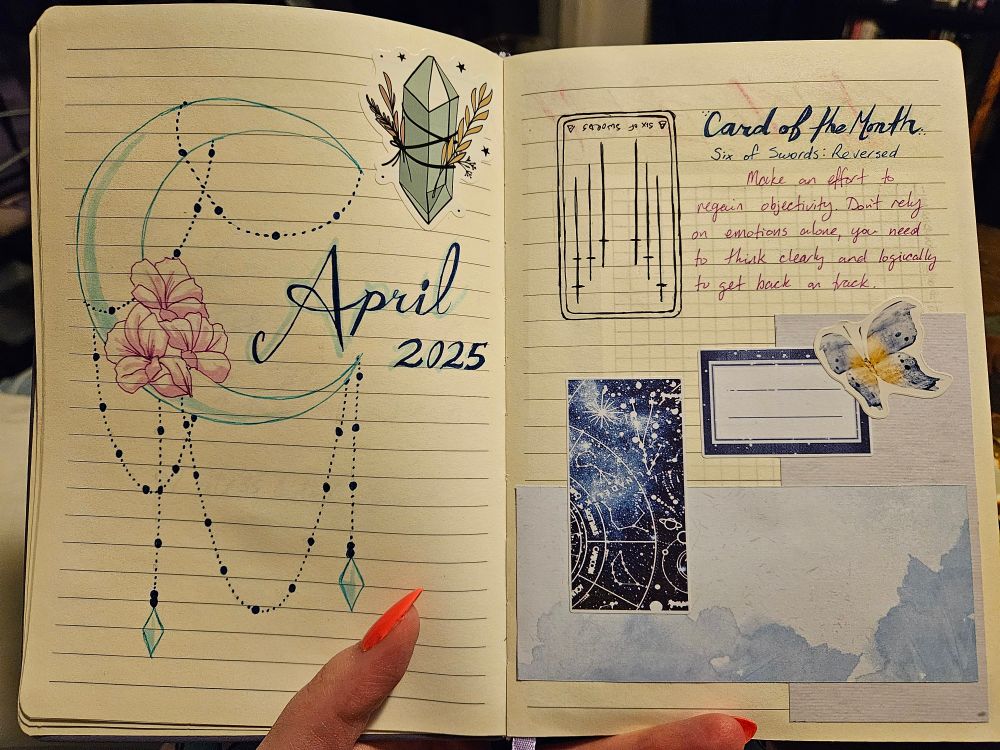 April
2025
SIX OF SWORDS
Card of the Month
Six of Swords: Reversed
Make an effort to
regain objectivity. Don't rely
on emotions alone, you need
to think clearly and logically
to get back on track.
CAPRICORN